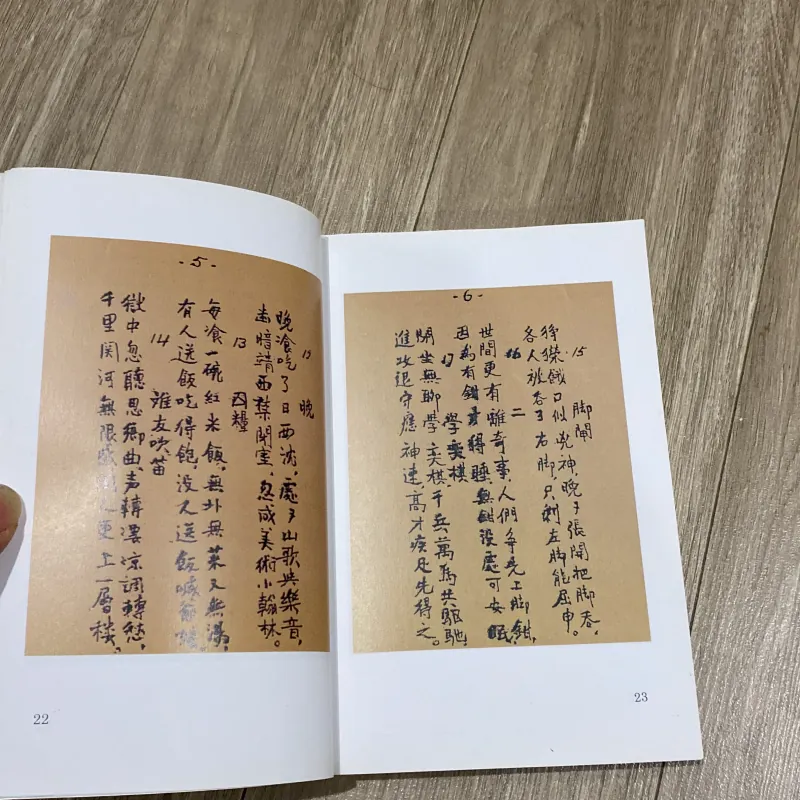 - 5 -
12 晚
晚飡吃了日西沈,處々山歌與樂音,
幽暗靖西禁閉室,忽成美術小翰林。
13 囚糧
每飡一碗紅米飯,無無菜又無湯,
有人送飯吃得飽,沒人送飯喊爺娘
14 難友吹笛
獄中忽聽思鄉曲,声轉凄凉調轉愁,
千里関河無限感人更上一層樓,
22
- 6 -
15 脚閘
猙獰餓口似兇神,晚々張開把脚吞,
各人被吞了右脚,只剩左脚能屈申。
16 二
世間更有離奇事,人們爭先上脚鉗,
因為有鉗得睡,無鉗沒處可安眠
17 學奕棋
閒坐無聊學奕棋,千兵萬馬共驅馳
進攻退守應神速,高才疾足先得之。
23